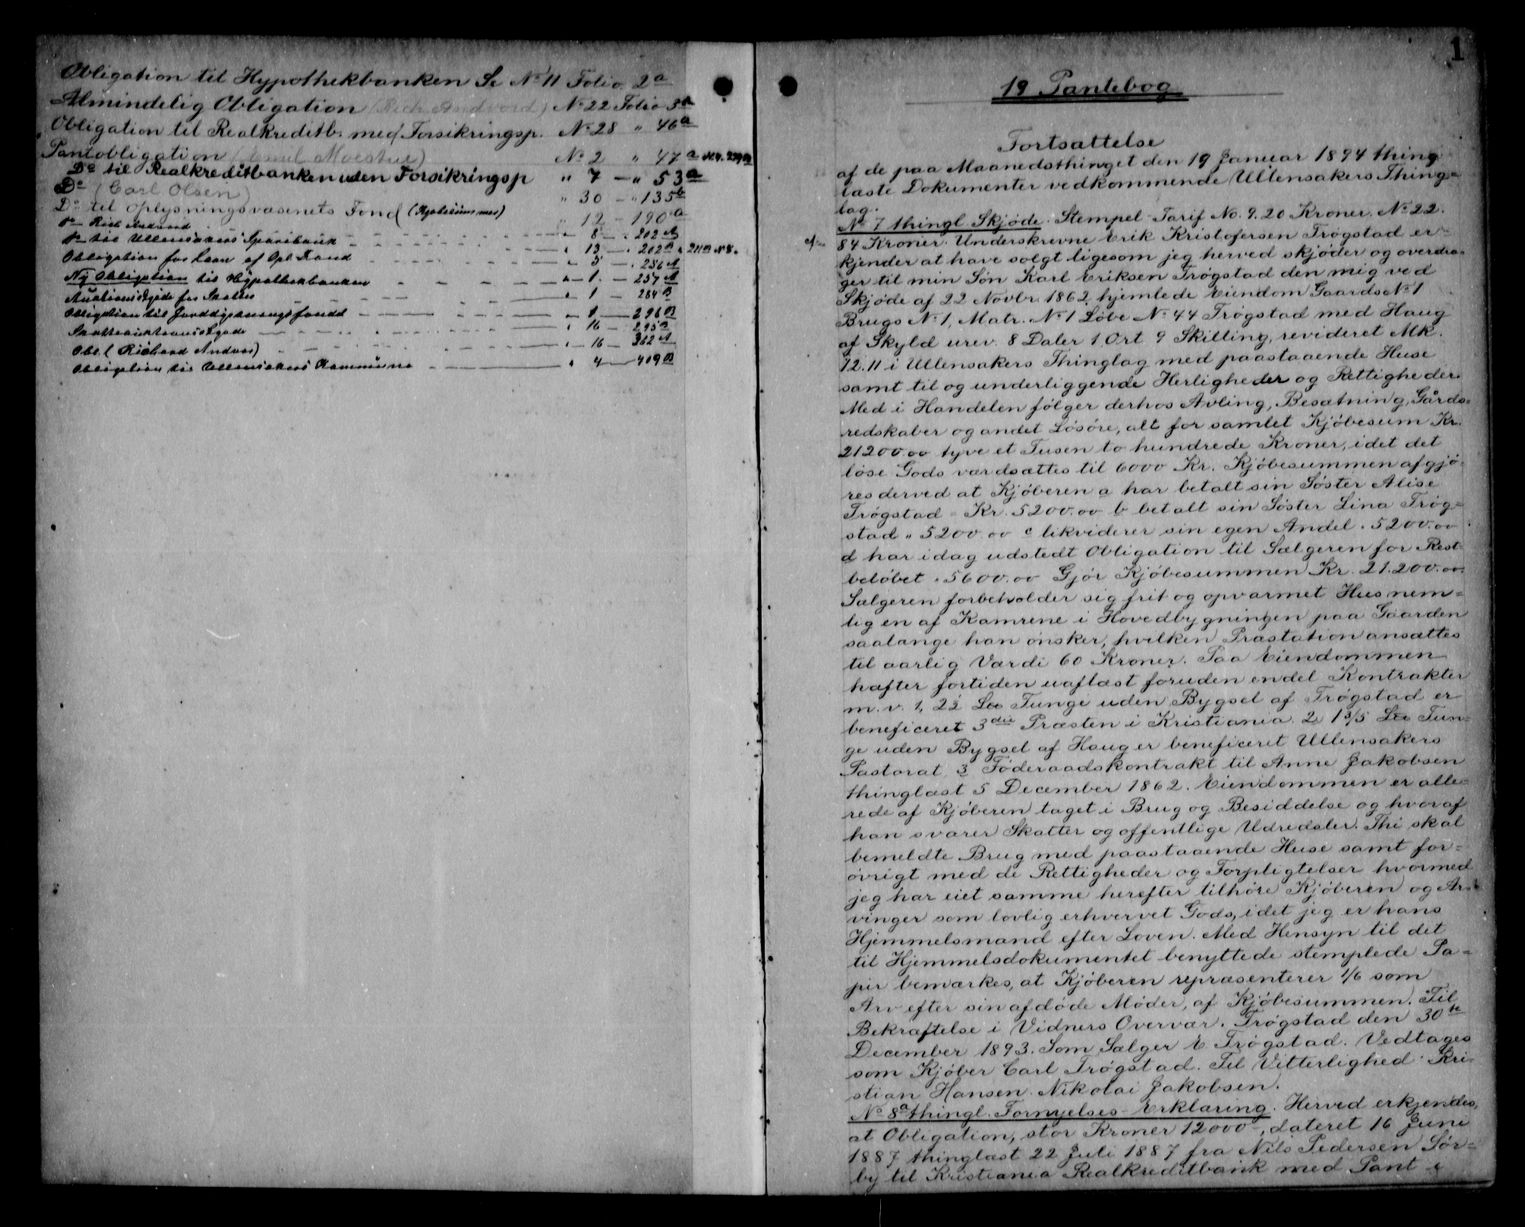 Obligation til Hypothekbanken Se No 11 Folio 2a
Almindelig Obligation (Rich. Andvord) No 22 Folio 3a
Obligation til Realkreditb. med Forsikringsp. No 28 " 46a
Pantobligation (Emil Moestue) No 2 " 47a
Do til Realkreditbanken uden Forsikringsp " 7 — " 53a
Do (Carl Olsen) " 30 — " 135b
Do til Oplysningsvæsenets Fond " 12 — 190a
Do Rich Andvord " 8 — 202A
Do til Ullensakers Sparebank " 13 — 202B
Obligation for Laan af Opl. Fond " 3 — 236A
Ny Obligation til Hypothekbanken " 1 — 257A
Auktionsskjøde fra " 1 — 284B
Obligation til Jorddyrkningsfondet " 1 — 296B
Skatteauktionsskjøde " 16 — 295B
Obl. (Richard Andvor) " 16 — 322A
Obligation til Ullensakers Kommune " 4 — 409B
1
19 Pantebog
Fortsættelse
af de paa Maanedsthinget den 19 Januar 1894 thing
læste Dokumenter vedkommende Ullensakers Thing-
lag.
No 7 thingl. Skjøde. Stempel-Tarif No. 9. 20 Kroner. No 22.
84 Kroner. Underskrevne Erik Kristofersen Trøgstad er-
kjender at have solgt ligesom jeg herved skjøder og overdra-
ger til min Søn Karl Eriksen Trøgstad den mig ved
Skjøde af 22 Novbr 1862 hjemlede Eiendom Gaards No 1
Brugs No 1, Matr. No 1 Løbe No 44 Trøgstad med Haug
af Skyld urev. 8 Daler 1 Ort 9 Skilling, revideret Mk.
12.11 i Ullensakers Thinglag med paastaaende Huse
samt til og underliggende Herligheder og Rettigheder.
Med i Handelen følger derhos Avling, Besætning, Gårds-
redskaber og andet Løsøre, alt for samlet Kjøbesum Kr.
21200.00 tyve et Tusen to hundrede Kroner, idet det
løse Gods værdsættes til 6000 Kr. Kjøbesummen afgjø-
res derved at Kjøberen a har betalt sin Søster Alise
Trøgstad Kr. 5200.00 b betalt sin Søster Lina Trøg-
stad " 5200.00 c likviderer sin egen Andel " 5200.00
d har idag udstedt Obligation til Sælgeren for Rest-
beløbet " 5600.00 Gjør Kjøbesummen Kr. 21.200.00.
Sælgeren forbeholder sig frit og opvarmet Hus nem-
lig en af Kamrene i Hovedbygningen paa Gaarden
saalange han ønsker, hvilken Præstation ansættes
til aarlig Værdi 60 Kroner. Paa Eiendommen
hæfter fortiden uaflæst foruden endel Kontrakter
m.v. 1, 22 Tunge uden Bygsel af Trøgstad er
beneficeret 3die Præsten i Kristiania. 2, 1 3/5 Tun-
ge uden Bygsel af Haug er beneficeret Ullensakers
Pastorat, 3 Føderaadskontrakt til Anne Jakobsen
thinglæst 5 December 1862. Eiendommen er alle-
rede af Kjøberen taget i Brug og Besiddelse og hvoraf
han svarer Skatter og offentlige Udredsler. Thi skal
bemeldte Brug med paastaaende Huse samt for-
øvrigt med de Rettigheder og Forpligtelser hvormed
jeg har eiet samme herefter tilhøre Kjøberen og Ar-
vinger som lovlig erhvervet Gods, idet jeg er hans
Hjemmelsmand efter Loven. Med Hensyn til det
til Hjemmelsdokumentet benyttede stemplede Pa-
pir bemærkes, at Kjøberen repræsenterer 1/6 som
Arv efter sin afdøde Moder, af Kjøbesummen. Til
Bekræftelse i Vidners Overvær. Trøgstad den 30te
December 1893. Som Sælger E Trøgstad. Vedtages
som Kjøber Carl Trøgstad. Til Vitterlighed: Kri-
stian Hansen. Nikolai Jakobsen.
No 8a thingl. Fornyelses-Erklæring. Herved erkjendes,
at Obligation, stor Kroner 12000, dateret 16 Juni
1887 thinglæst 22 Juli 1887 fra Nils Pedersen Sør-
by til Kristiania Realkreditbank med Pant i